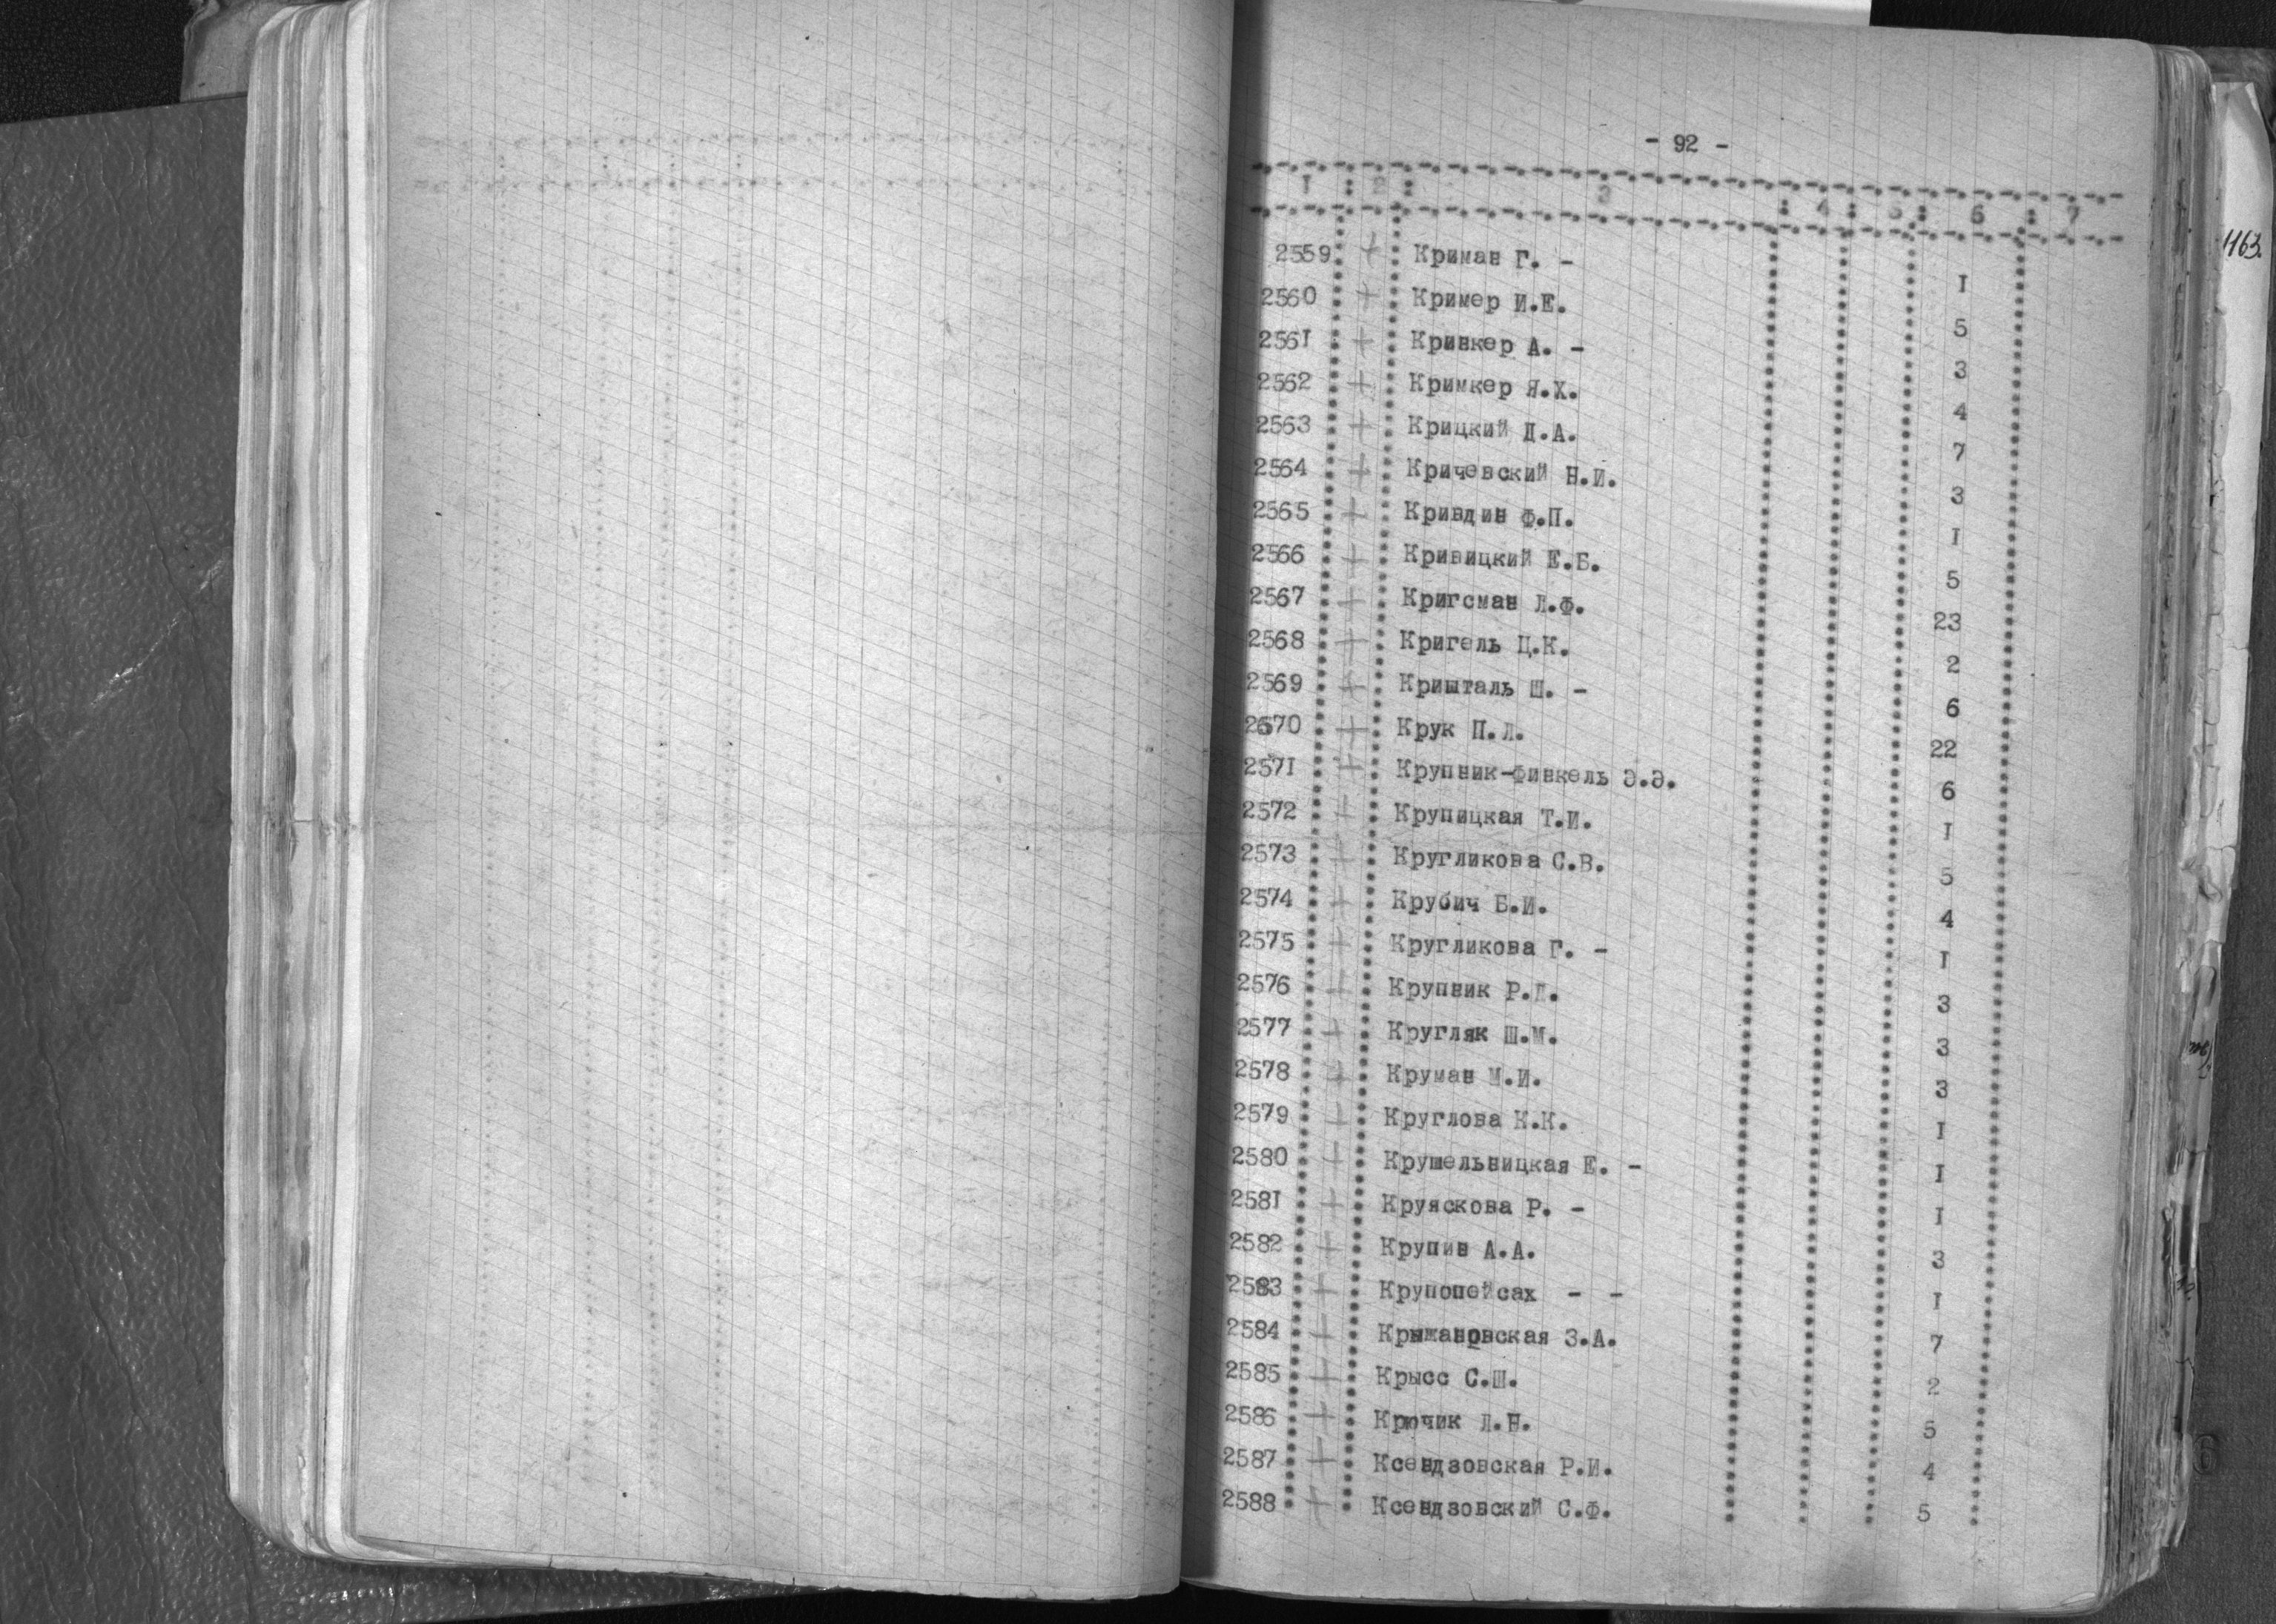 - 92 -
I : 2 : 3 : 4 : 5 : 6 : 7
2559 + Криман Г. - I
2560 + Кример И.Е. 5
2561 + Кринкер А. - 3
2562 + Кримкер Я.Х. 4
2563 + Крицкий Д.А. 7
2564 + Кричевский Н.И. 3
2565 + Кривдин Ф.П. I
2566 + Кривицкий Е.Б. 5
2567 + Кригсман Л.Ф. 23
2568 + Кригель Ц.К. 2
2569 + Кришталь Ш. - 6
2570 + Крук П.Л. 22
2571 + Крупник-Финкель Э.Э. 6
2572 + Крупицкая Т.И. I
2573 + Кругликова С.В. 5
2574 + Крубич Б.И. 4
2575 + Кругликова Г. - I
2576 + Крупник Р.Д. 3
2577 + Кругляк Ш.М. 3
2578 + Круман М.И. 3
2579 + Круглова К.К. I
2580 + Крушельницкая Е. - I
2581 + Круяскова Р. - I
2582 + Крупин А.А. 3
2583 + Крупопейсах - - I
2584 + Крыжановская З.А. 7
2585 + Крысс С.Ш. 2
2586 + Крючик Л.Н. 5
2587 + Ксендзовская Р.И. 4
2588 + Ксендзовский С.Ф. 5
1163.